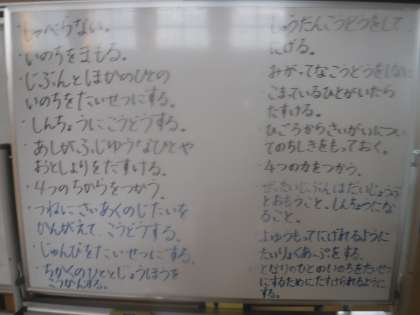 ・しゃべらない。
・いのちをまもる。
・じぶんとほかのひとの
いのちをたいせつにする。
・しんちょうにこうどうする。
・あしがふじゆうなひとや
おとしよりをたすける。
・4つのちからをつかう。
・つねにさいあくのじたいを
かんがえて、こうどうする。
・じゅんびをたいせつにする。
・ちかくのひととじょうほうを
こうかんする。
しゅうだんこうどうをして
にげる。
・みがってなこうどうをしない
・こまっているひとがいたら
たすける。
・ひごろからさいがいについ
てのちしきをもっておく。
・4つの力をつかう。
・ぜったいじぶんはだいじょうぶ
とおもうこと。しんちょうにな
ること。
・よゆうもってにげれるように
たいりょくあっぷをする。
・となりのひとのいのちをたいせつ
にするためにたすけられるように
する。